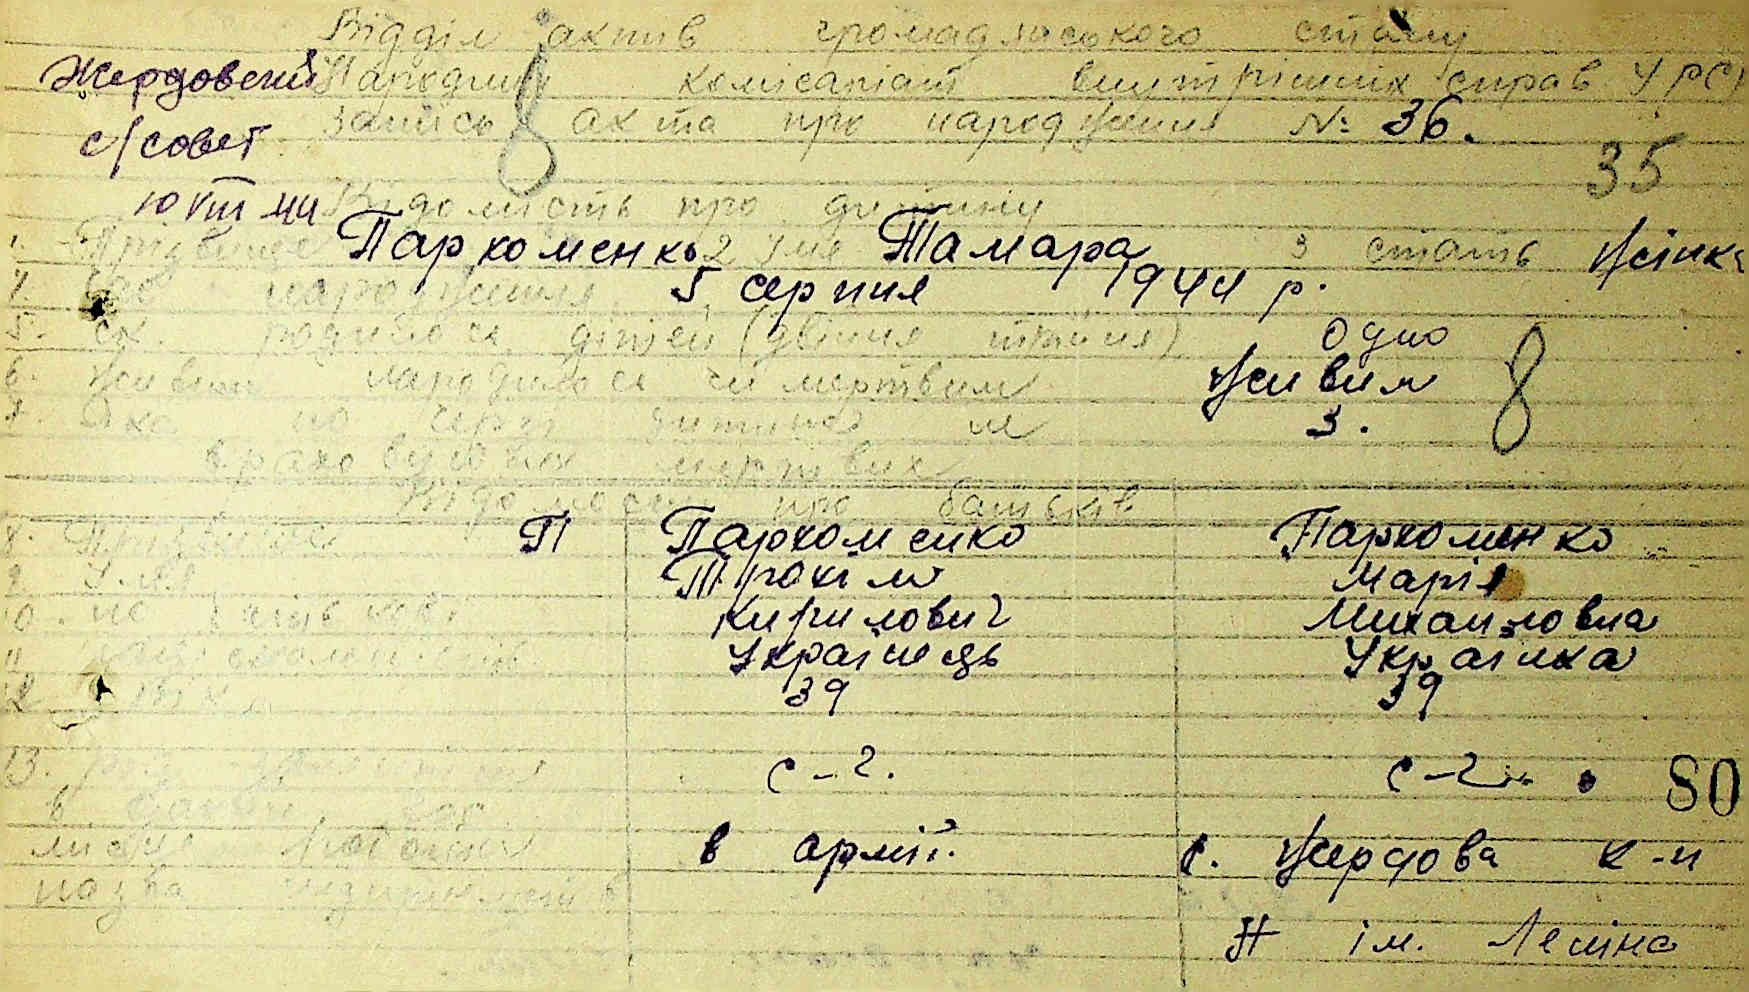 Відділ актив громадянського стану
Жердовский Народный комісаріат внутрішніх справ УРСР
запись акта про народження № 36.
с/совет
35
8
Відомість про дитину
1. Прізвище Пархоменко 2 Імя Тамара 3 стать жінка
4. народження 5 серпня 1944 р.
5. ск. родилось дітей (двійня трійня) Одно
6. живим народилося чи мертвим живим 8
7. Яка по черзі дитина 3.
враховуючи мертвих
Відомость про батьків
8. Прізвище П Пархоменко Пархоменко
9. Імя Трохим Марія
10. по Кирилович Михаиловна
11 Українець Українка
12 Вік 39 39
13. с-г. с-г. 80
місце роботи в армії. с. Жердова к-п
назва
Н ім. Леніна